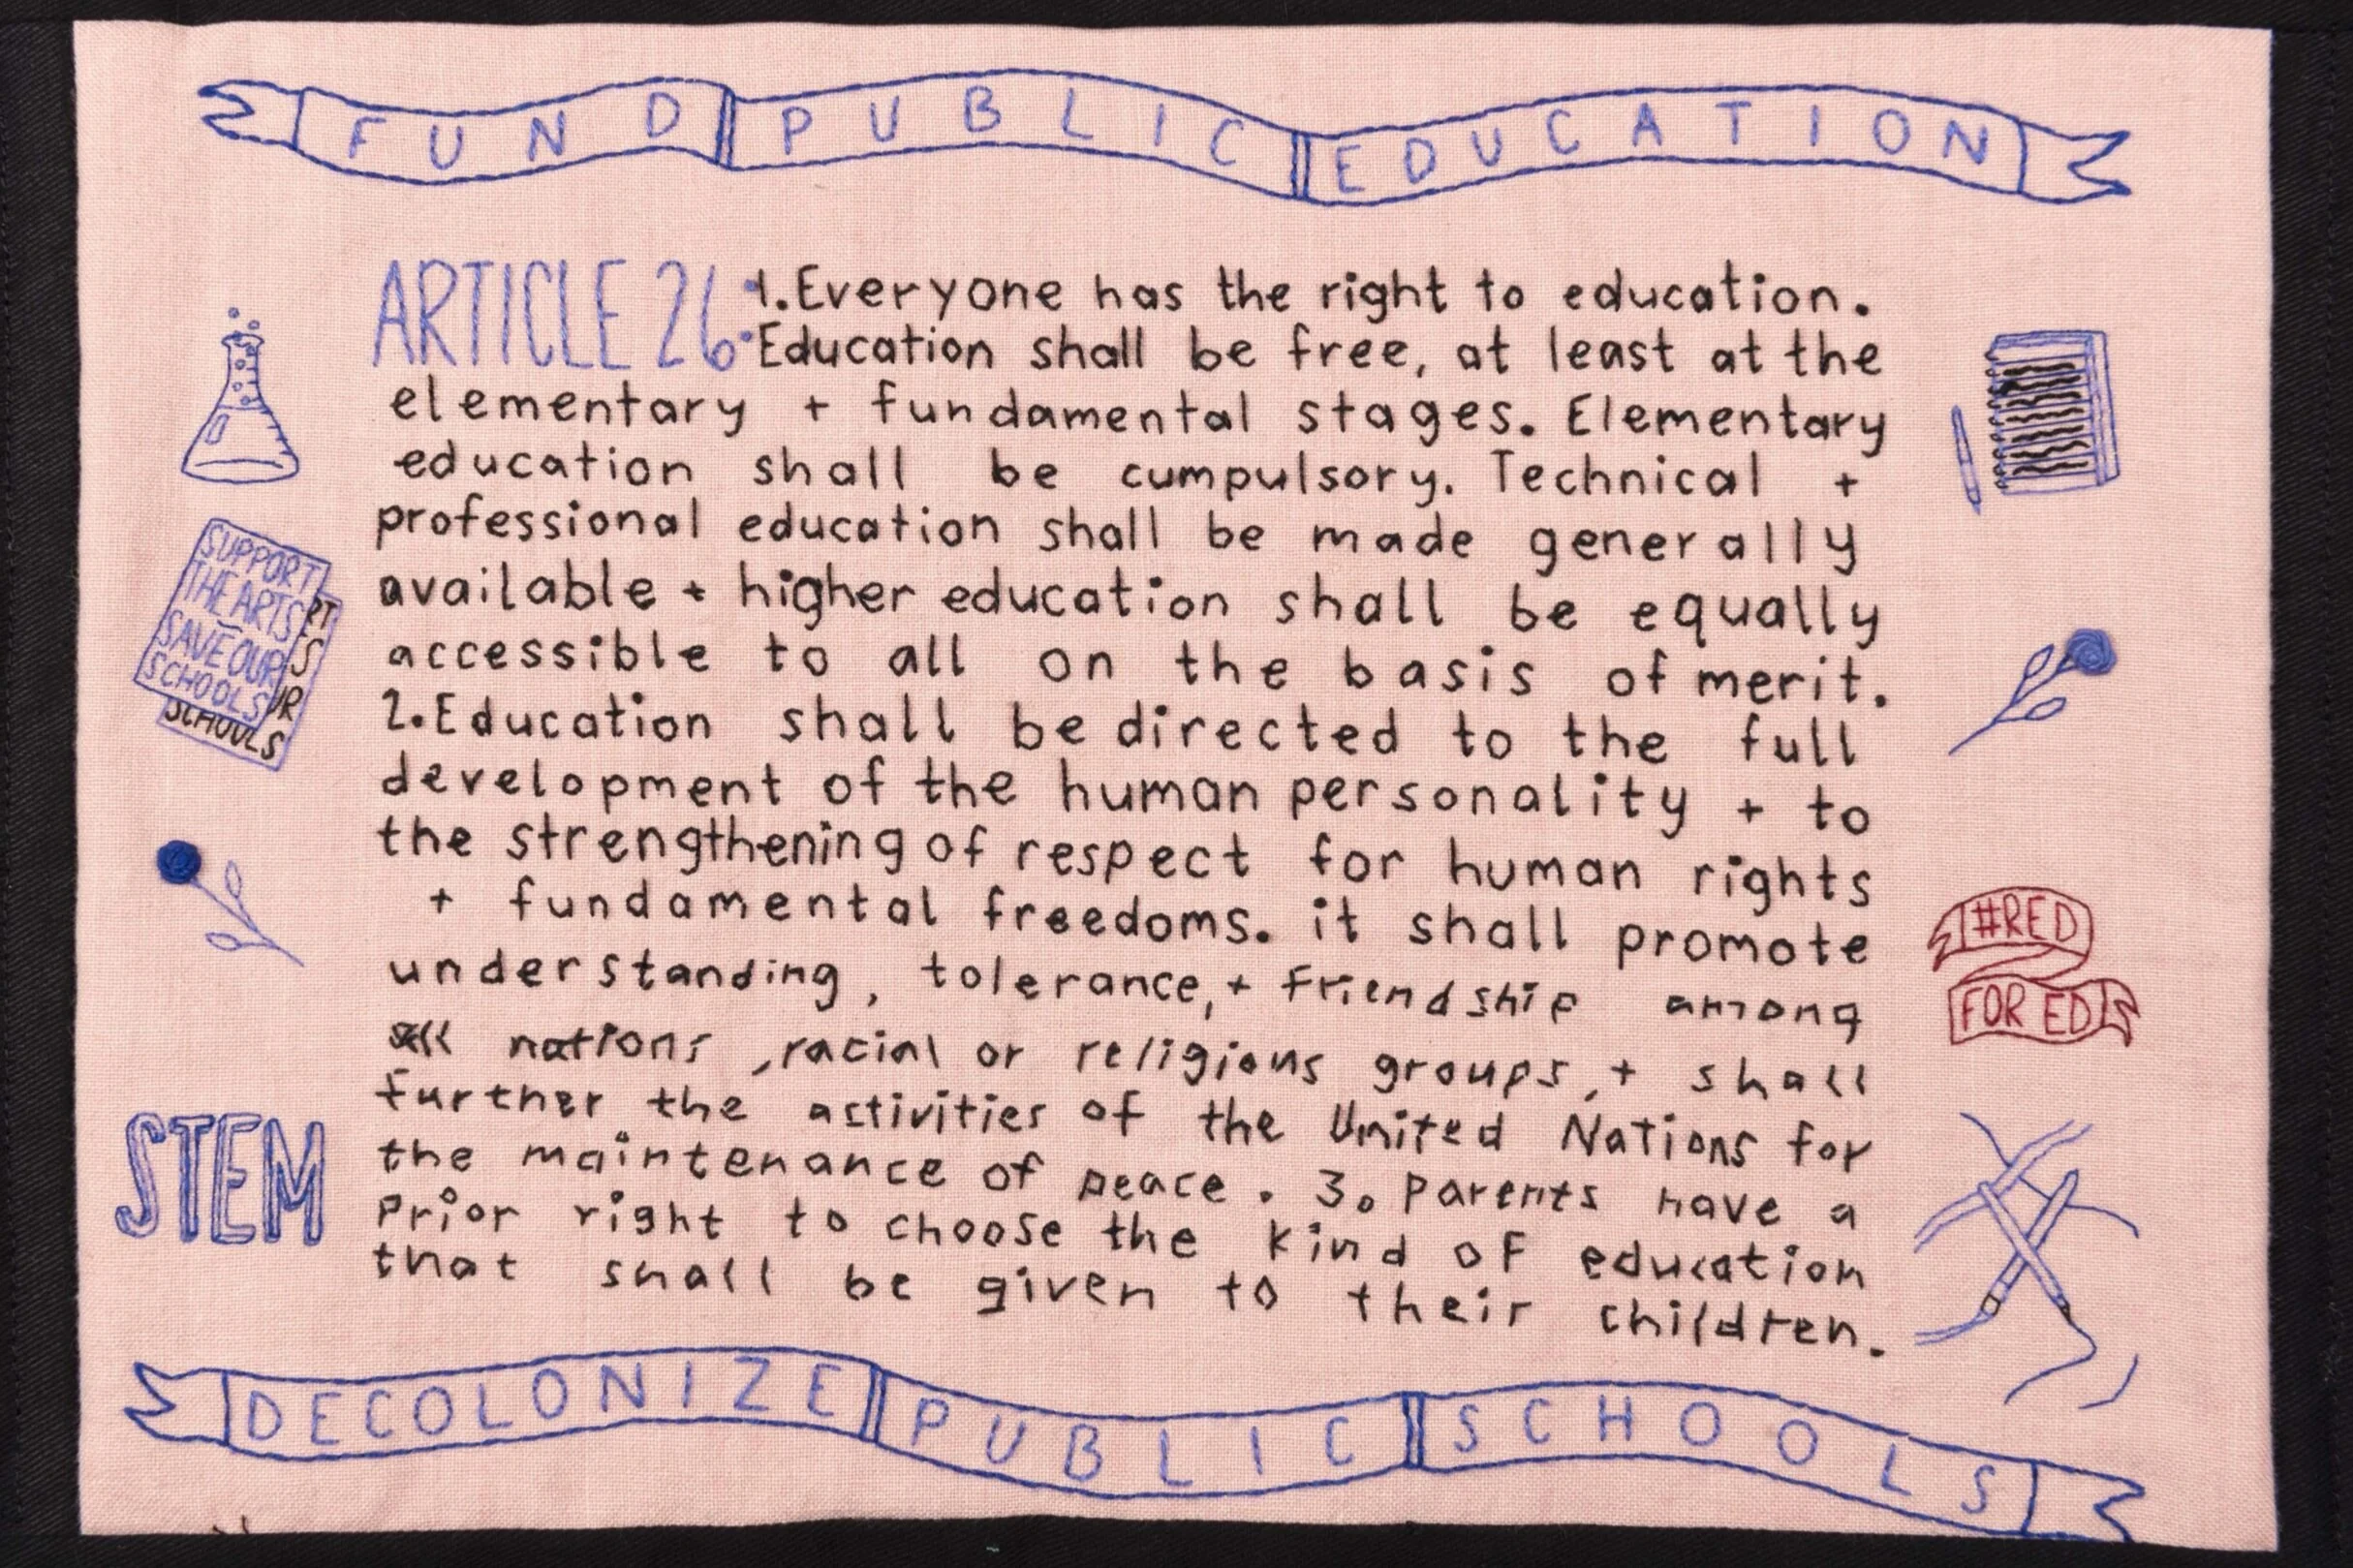 FUND PUBLIC EDUCATION
ARTICLE 26: 1. Everyone has the right to education.
Education shall be free, at least at the
elementary + fundamental stages. Elementary
education shall be cumpulsory. Technical +
professional education shall be made generally
available + higher education shall be equally
accessible to all on the basis of merit.
2. Education shall be directed to the full
development of the human personality + to
the strengthening of respect for human rights
+ fundamental freedoms. it shall promote
understanding, tolerance, + friendship among
all nations, racial or religious groups, + shall
further the activities of the United Nations for
the maintenance of peace. 3. Parents have a
prior right to choose the kind of education
that shall be given to their children.
SUPPORT
THE ARTS
SAVE OUR
SCHOOLS
RT
S
UR
SCHOOLS
STEM
#RED
FOR ED
DECOLONIZE PUBLIC SCHOOLS